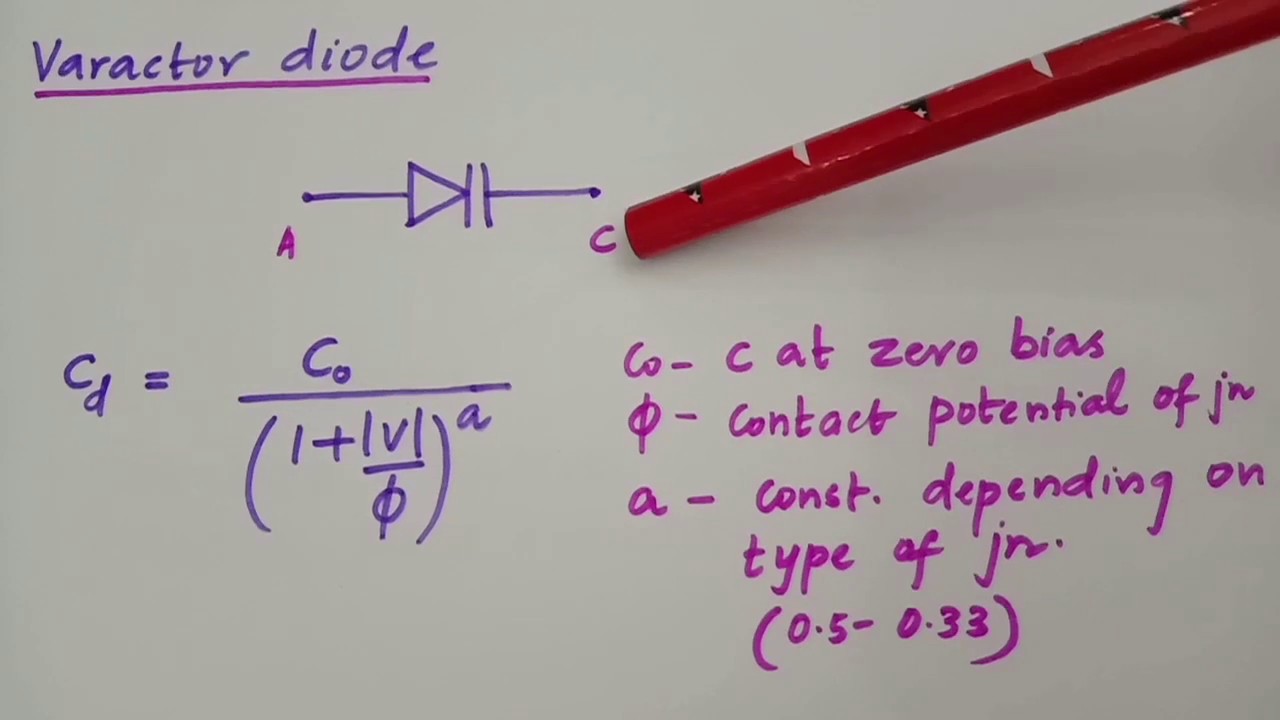 Varactor diode
A C
C_d = C_0 / (1 + |V|/ϕ)^a
Co - C at zero bias
ϕ - contact potential of jn
a - const. depending on
type of jn.
(0.5 - 0.33)